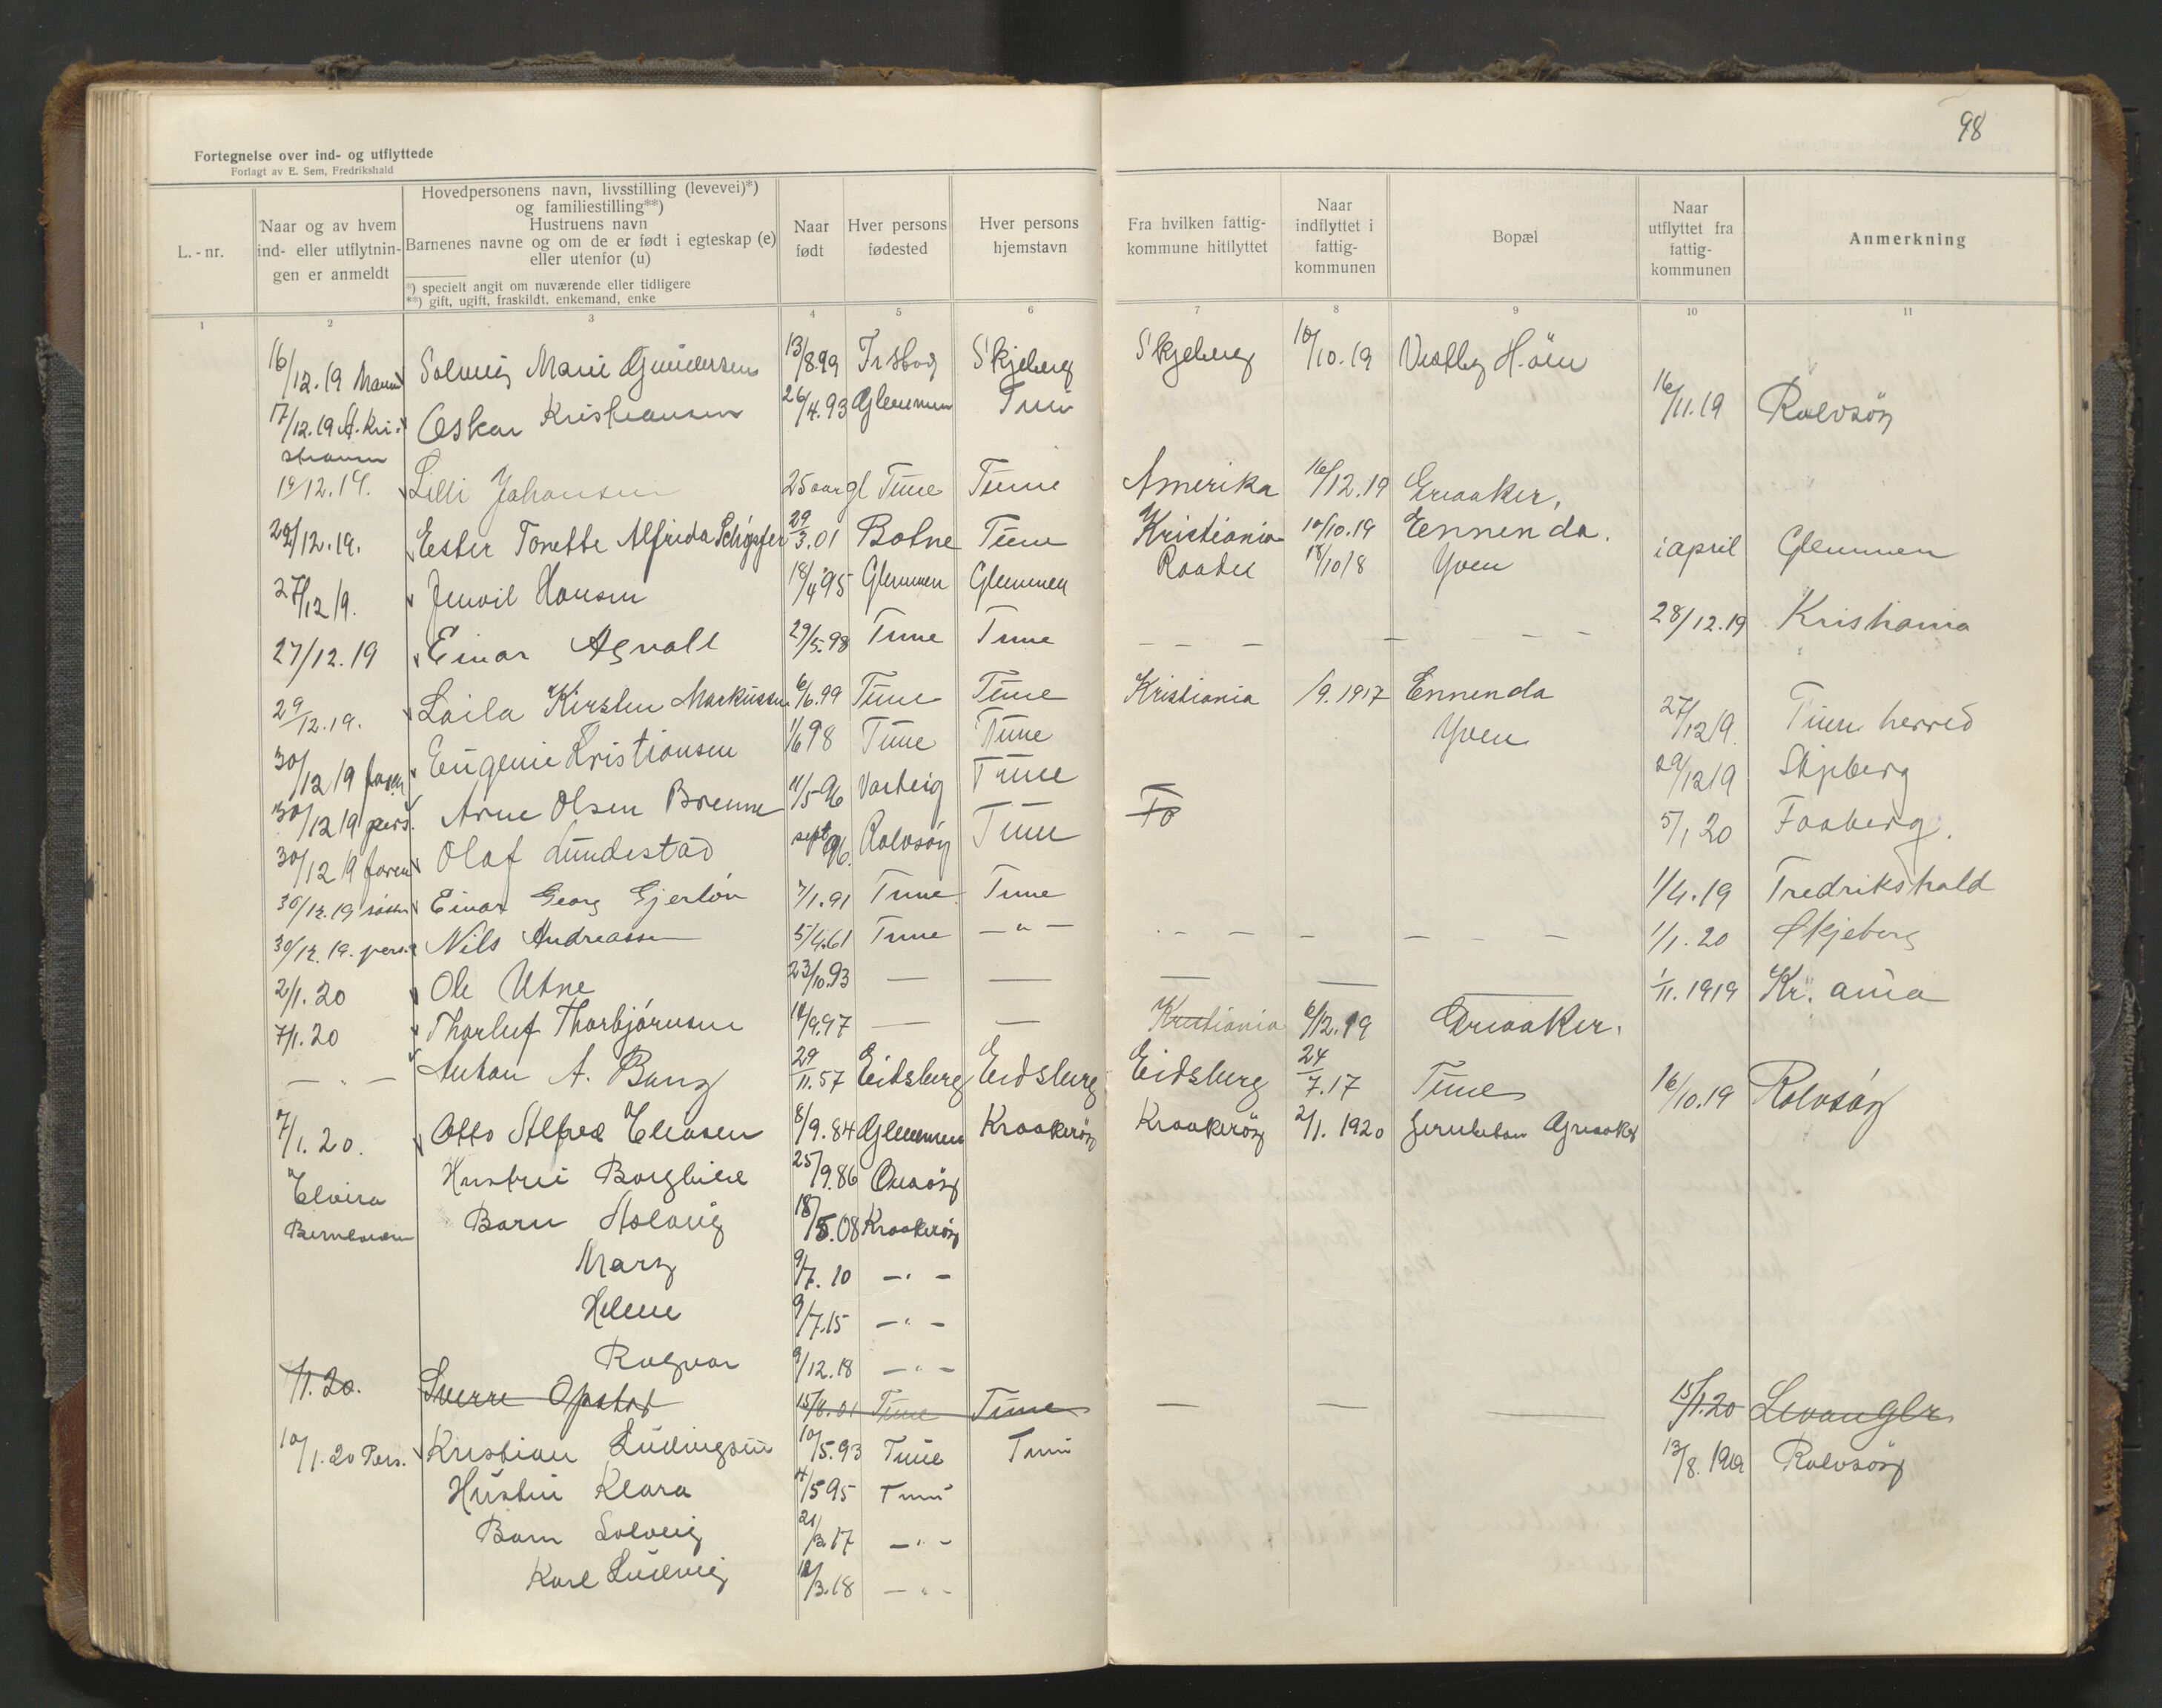 98
Fortegnelse over ind- og utflyttede
Forlagt av E. Sem, Fredrikshald
L.-nr.
Naar og av hvem ind- eller utflytningen er anmeldt
Hovedpersonens navn, livsstilling (levevei)*)
og familiestilling**)
Hustruens navn
Barnenes navne og om de er født i egteskap (e)
eller utenfor (u)
*) specielt angit om nuværende eller tidligere
**) gift, ugift, fraskildt, enkemand, enke
Naar født
Hver persons fødested
Hver persons hjemstavn
Fra hvilken fattigkommune hitflyttet
Naar indflyttet i fattigkommunen
Bopæl
Naar utflyttet fra fattigkommunen
Anmerkning
1 2 3 4 5 6 7 8 9 10 11
16/12.19 Solveig Marie Gundersen 13/8.99 Skjeberg Skjeberg 10/10.19
17/12.19 A. Kristiansen Oskar Kristiansen 26/4.93 Glemmen Tune 16/11.19 Rolvsöy
19/12.19. Lilli Johansen 25 aar gl Tune Tune Amerika 16/12.19 Greaaker.
29/12.19. Ester Tonette Alfrida Schøpfer 29/3.01 Botne Tune Kristiania 10/10.19 Ennenda.
27/12 19. Hansen 18/4 95 Glemmen Glemmen Raade 18/10 18 Yven i april Glemmen
27/12.19 Einar Agvall 29/5.98 Tune Tune — — — — — — — 28/12.19 Kristiania
29/12.19. Laila Kirsten Markussen 6/6.99 Tune Tune Kristiania /9.1917 Ennenda
30/12 19 faren Eugenie Kristiansen 1/6 98 Tune Tune Yven 27/12 19 Tune herred
30/12 19 pers. Arne Olsen Brenne 11/5 96 Varteig Tune Fo 29/12 19 Skjeberg
30/12 19 faren Olaf Lundestad sept 96. Rolvsöy Tune 5/1 20 Faaberg.
30/12.19 Einar Georg Gjerlöv 7/1.91 Tune Tune 1/4.19 Fredrikshald
30/12.19. pers. Nils Andreassen 5/4.61 Tune — " — — — — — — — 1/1.20 Skjeberg
2/1.20 Ole Utne 23/10.93 — — — — — 1/11.1919 Kr. ania
7/1.20 Thorleif Thorbjörnsen 14/9.97 — — Kristiania 6/12.19 Greaaker.
— " — Anton A. Bang 29/11.57 Eidsberg Eidsberg Eidsberg 24/7.17 Tune 16/10.19 Rolvsöy
7/1.20. Otto Alfred Eliasen 8/9.84 Glemmen Kraakeröy Kraakeröy 2/1.1920 Greaaker
Elvira Hustru Borghild 25/9.86 Onsöy
Barn Solveig 18/5.08 Kraakeröy
Mary 9/7.10 — " —
Helene 9/7.15 — " —
Ragnar 9/12.18 — " —
/1.20. Sverre Opstad 15/6.01 Tune Tune — — — 15/1.20 Levanger
10/1.20 Pers. Kristian Ludvigsen 10/5.93 Tune Tune 13/8.1919 Rolvsöy
Hustru Klara 4/5 95 Tune
Barn Solveig 21/3.17 — " —
Karl Ludvig 12/3.18 — " —